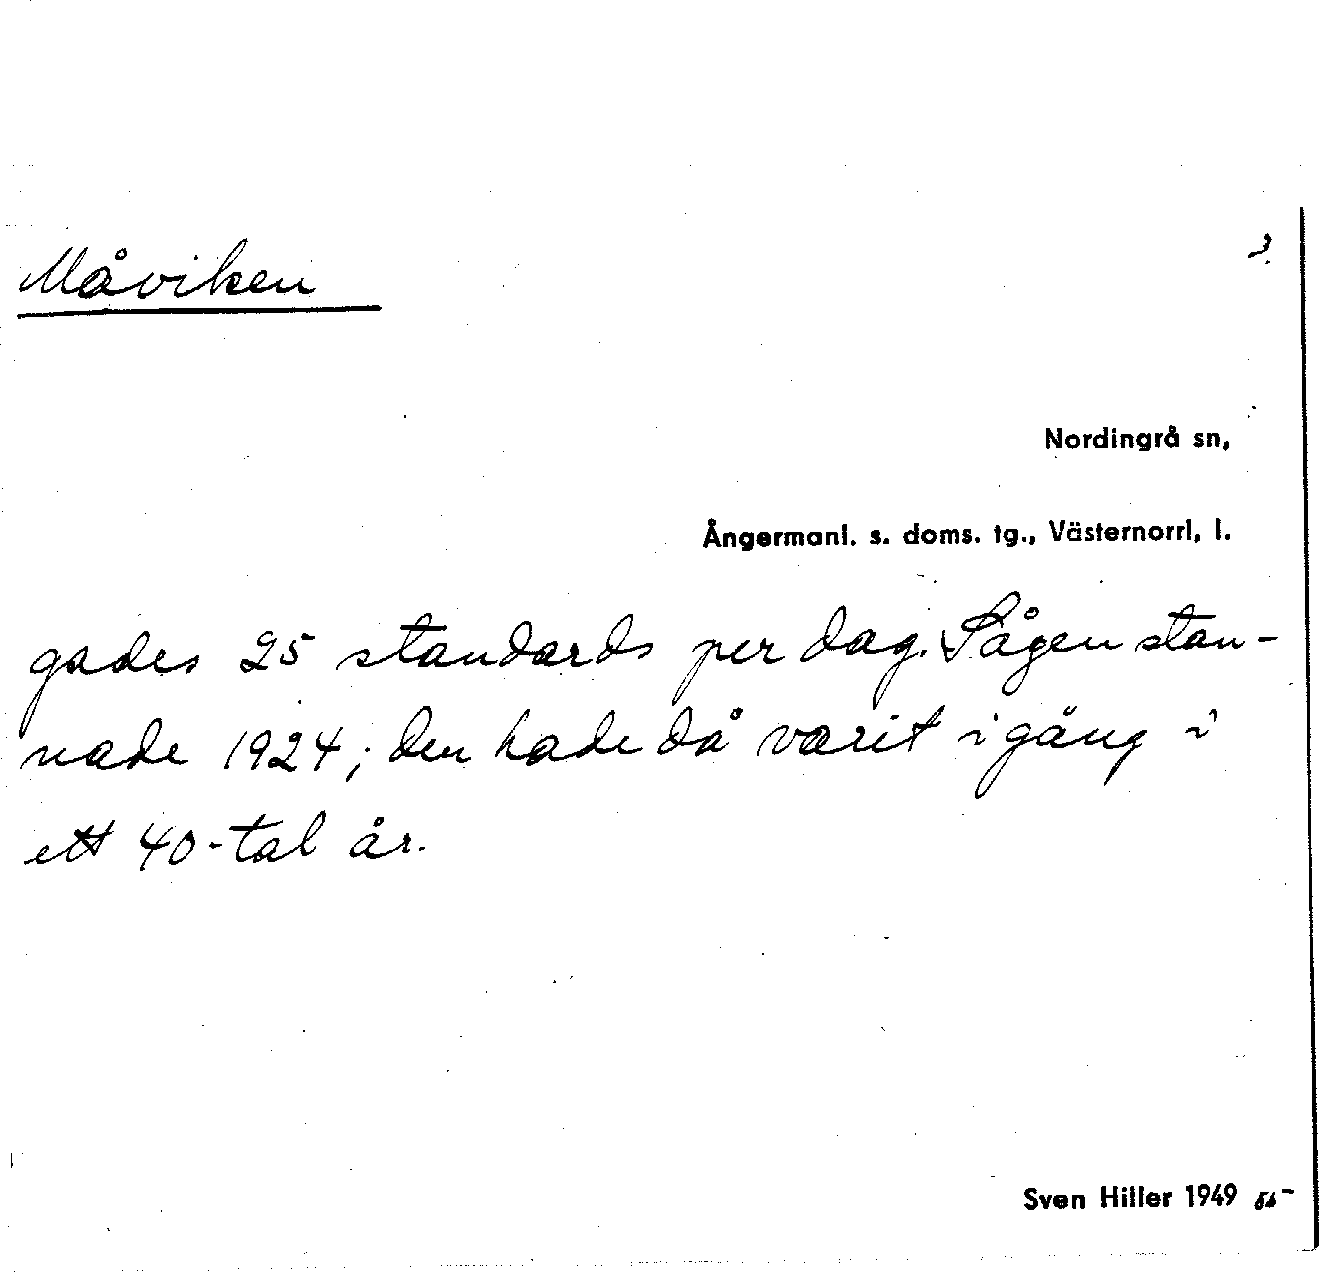 Måviken
3.
Nordingrå sn,
Ångermanl. s. doms. tg., Västernorrl, l.
gades 25 standards per dag. Sågen stan-
nade 1924; den hade då varit i gång i
ett 40-tal år.
Sven Hiller 1949